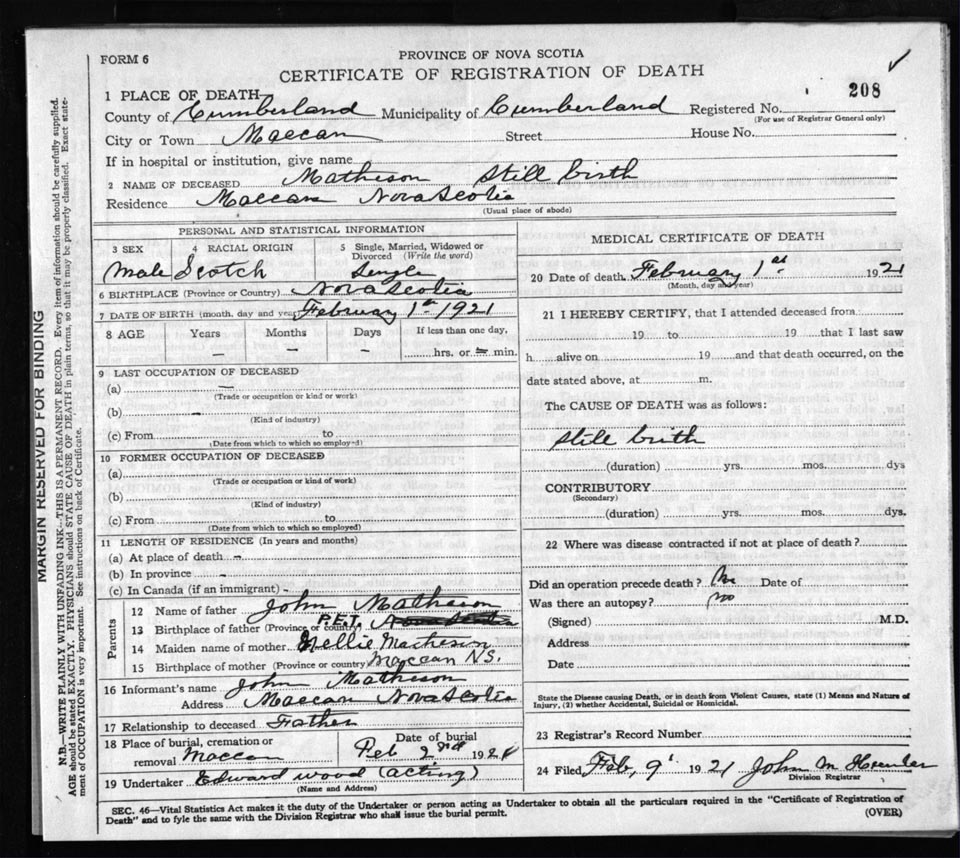 FORM 6
PROVINCE OF NOVA SCOTIA
CERTIFICATE OF REGISTRATION OF DEATH
208
1 PLACE OF DEATH
County of Cumberland Municipality of Cumberland Registered No.
(For use of Registrar General only)
City or Town Maccan Street House No.
If in hospital or institution, give name
2 NAME OF DECEASED Matheson Still birth
Residence Maccan Nova Scotia
(Usual place of abode)
PERSONAL AND STATISTICAL INFORMATION
3 SEX 4 RACIAL ORIGIN 5 Single, Married, Widowed or Divorced (Write the word)
Male Scotch Single
6 BIRTHPLACE (Province or Country) Nova Scotia
7 DATE OF BIRTH (month, day and year) February 1st 1921
8 AGE Years Months Days If less than one day,
– – – hrs. or – min.
9 LAST OCCUPATION OF DECEASED
(a) –
(Trade or occupation or kind or work)
(b) –
(Kind of industry)
(c) From to
(Date from which to which so employed)
10 FORMER OCCUPATION OF DECEASED
(a)
(Trade or occupation or kind of work)
(b)
(Kind of industry)
(c) From to
(Date from which to which so employed)
11 LENGTH OF RESIDENCE (In years and months)
(a) At place of death –
(b) In province –
(c) In Canada (if an immigrant) –
Parents
12 Name of father John Matheson
13 Birthplace of father (Province or country) P.E.I. Nova Scotia
14 Maiden name of mother Nellie Matheson
15 Birthplace of mother (Province or country) Maccan N.S.
16 Informant's name John Matheson
Address Maccan Nova Scotia
17 Relationship to deceased Father
18 Place of burial, cremation or removal Maccan Date of burial Feb 2nd 1921
19 Undertaker Edward Wood (acting)
(Name and Address)
MEDICAL CERTIFICATE OF DEATH
20 Date of death February 1st 1921
(Month, day and year)
21 I HEREBY CERTIFY, that I attended deceased from:
19 to 19 that I last saw
h alive on 19 and that death occurred, on the
date stated above, at m.
The CAUSE OF DEATH was as follows:
Still birth
(duration) yrs. mos. dys
CONTRIBUTORY
(Secondary)
(duration) yrs. mos. dys.
22 Where was disease contracted if not at place of death?
Did an operation precede death? No Date of
Was there an autopsy? no
(Signed) M.D.
Address
Date
State the Disease causing Death, or in death from Violent Causes, state (1) Means and Nature of
Injury, (2) whether Accidental, Suicidal or Homicidal.
23 Registrar's Record Number
24 Filed Feb, 9 1921 John M
Division Registrar
SEC. 46—Vital Statistics Act makes it the duty of the Undertaker or person acting as Undertaker to obtain all the particulars required in the "Certificate of Registration of
Death" and to fyle the same with the Division Registrar who shall issue the burial permit.
(OVER)
MARGIN RESERVED FOR BINDING
N.B.—WRITE PLAINLY WITH UNFADING INK—THIS IS A PERMANENT RECORD. Every item of information should be carefully supplied.
AGE should be stated EXACTLY. PHYSICIANS should STATE CAUSE OF DEATH in plain terms, so that it may be properly classified. Exact state-
ment of OCCUPATION is very important. See instructions on back of Certificate.